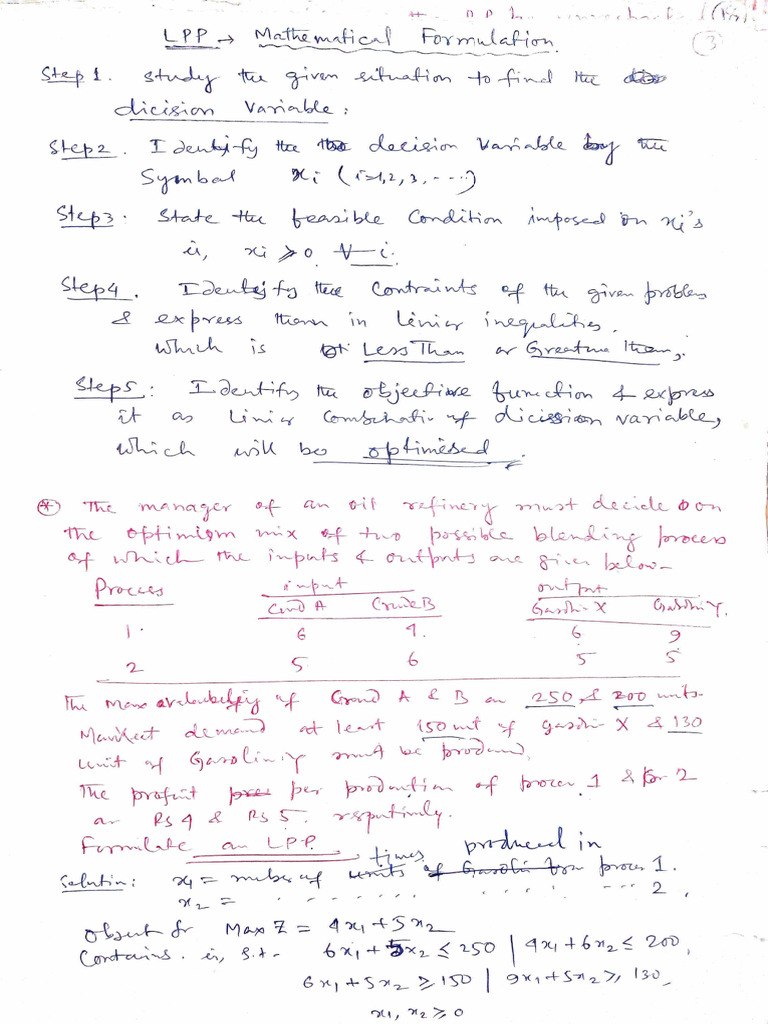 (3)
LPP → Mathematical Formulation.
Step 1. study the given situation to find the
dicision variable:
Step2. Identify the decision variable by the
Symbol xi (i=1,2,3,----)
Step3. State the feasible condition imposed on xi's
is, xi ≥ 0 ∀ i.
Step4. Identify the Contraints of the given problem
& express them in linier inequalities.
which is Less Than or Greature them,
Step5: Identify the objective function & express
it as linier combination of dicission variable,
which will be optimised.
* The manager of an oil refinery must decide on
the optimism mix of two possible blending process
of which the inputs & outputs are given below-
Process input output
Crud A Crude B Gasolin X Gasolin Y.
1. 6 4. 6 9
2 5 6 5 5
The max availability of Crud A & B are 250 & 200 units.
Market demand at least 150 unit of gasolin X & 130
unit of Gasolin.Y must be produced.
The profit per production of process 1 & 2
are Rs 4 & Rs 5. respectively.
Formulate an LPP.
Solution: x1 = number of times produced in process 1.
x2 = . . . . . . . . . . --- 2.
Object fn Max Z = 4x1 + 5x2
Contains. is, s.t. 6x1 + 5x2 ≤ 250 | 4x1 + 6x2 ≤ 200,
6x1 + 5x2 ≥ 150 | 9x1 + 5x2 ≥, 130,
x1, x2 ≥ 0